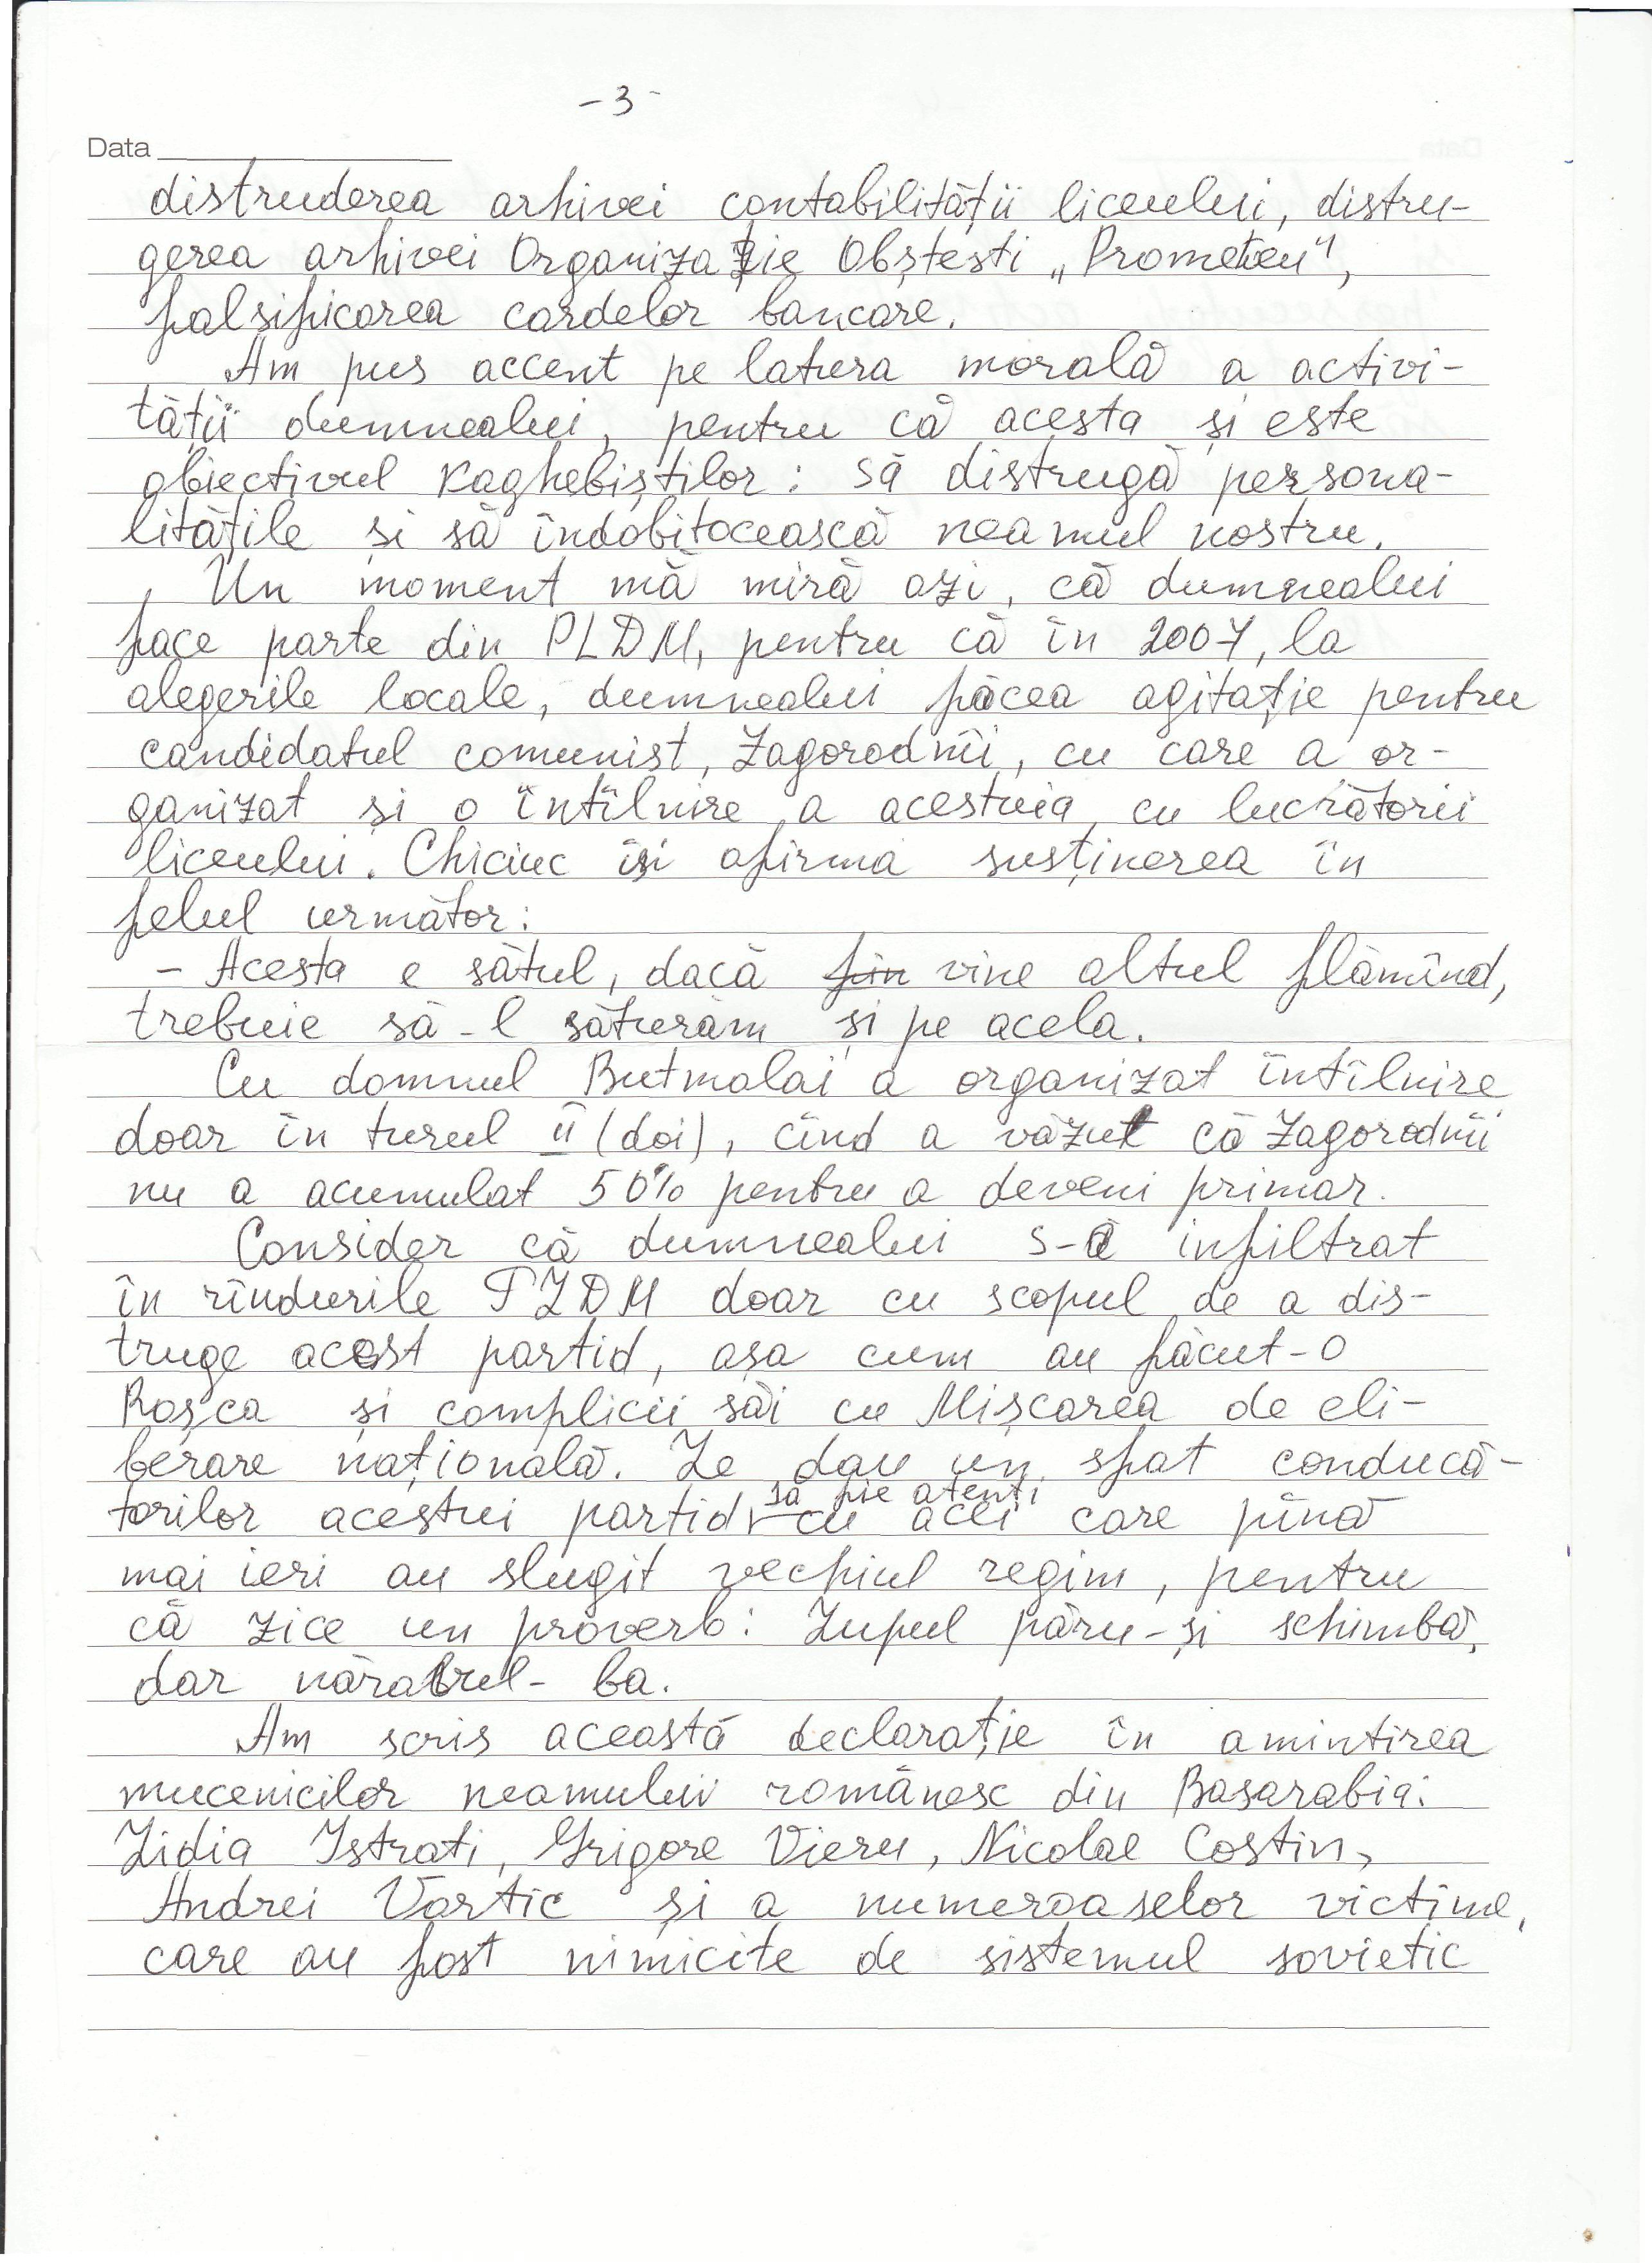 - 3 -
Data
distruderea arhivei contabilității liceului, distru-
gerea arhivei Organizație Obștești „Prometeu",
falsificarea cardelor bancare.
Am pus accent pe latura morală a activi-
tății dumnealui, pentru că acesta și este
obiectivul kaghebiștilor: să distrugă persona-
litățile și să îndobitocească neamul nostru.
Un moment mă miră azi, că dumnealui
face parte din PLDM, pentru că în 2007, la
alegerile locale, dumnealui făcea agitație pentru
candidatul comunist, Zagorodnîi, cu care a or-
ganizat și o întîlnire a acestuia cu lucrătorii
liceului. Chiciuc își afirma susținerea în
felul următor:
- Acesta e sătul, dacă fin vine altul flămînd,
trebuie să-l săturăm și pe acela.
Cu domnul Butmalai a organizat întîlnire
doar în turul II (doi), cînd a văzut că Zagorodnîi
nu a acumulat 50% pentru a deveni primar.
Consider că dumnealui s-a infiltrat
în rîndurile PLDM doar cu scopul de a dis-
truge acest partid, așa cum au făcut-o
Roșca și complicii săi cu Mișcarea de eli-
berare națională. Le dau un sfat conducă-
să fie atenți
torilor acestui partid cu acei care pînă
mai ieri au slugit vechiul regim, pentru
că zice un proverb: Lupul păru-și schimbă,
dar năravul- ba.
Am scris această declarație în amintirea
mucenicilor neamului românesc din Basarabia:
Lidia Istrati, Grigore Vieru, Nicolae Costin,
Andrei Vartic și a numeroaselor victime,
care au fost nimicite de sistemul sovietic